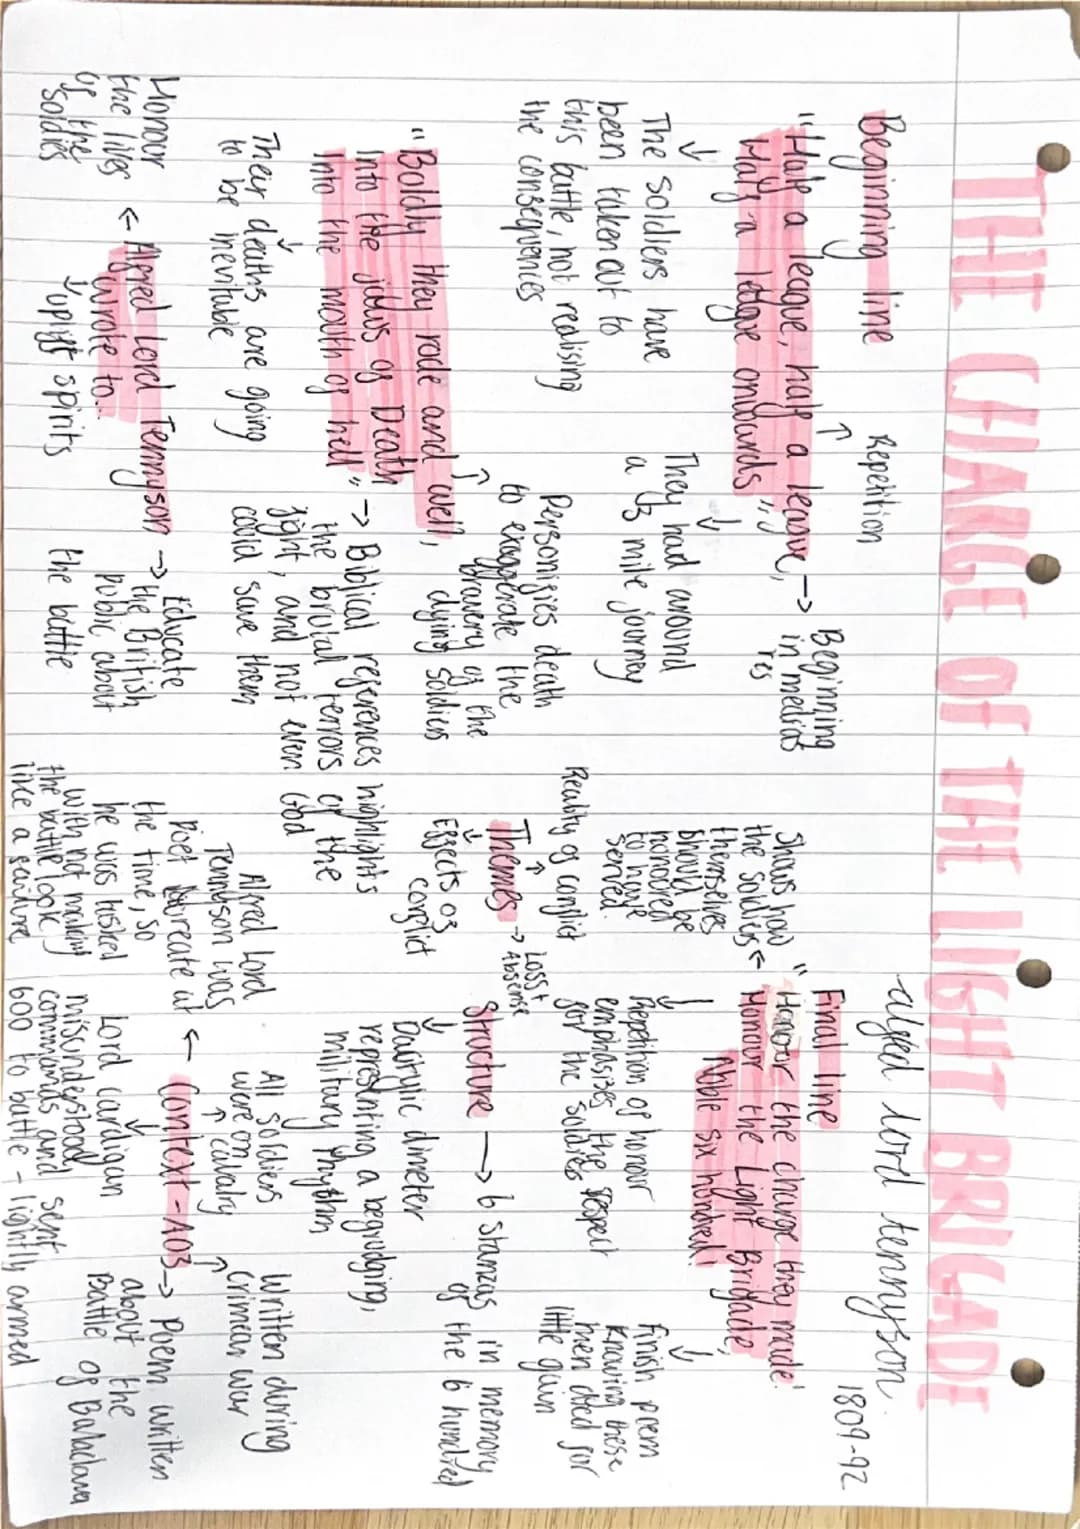 THE CHARGE OF THE LIGHT BRIGADE
alfred lord tennyson
1809-92
Beginning line
Repetition
"Half a league, half a league,
Half a league onwards,"
→ Beginning
in medias
res
The soldiers have
been taken out to
this battle, not realising
the consequences
They had around
a 1/3 mile journey
"Boldly they rode and well,
Into the jaws of Death
Into the mouth of hell"
Personifies death
to exaggerate the
bravery of the
dying soldiers
Their deaths are going
to be inevitable
→ Biblical references highlights
the brutal terrors of the
fight, and not even God
could save them
Alfred Lord Tennyson
wrote to...
Honour
the lives
of the
soldies
↓ uplift spirits
→ Educate
the British
public about
the battle
Final line
"Honour the charge they made!
Honour the Light Brigade,
Noble six hundred!
Shows how
the soldiers
themselves
should be
honoured
to have
served.
Repetition of honour
emphasizes the respect
for the soldies
Finish poem
knowing these
men died for
little gain
Reality of conflict
Themes
→ Loss +
Absense
Effects of
conflict
Structure → 6 stanzas in memory
of the 6 hundred
Dactylic dimeter
representing a begrudging,
military rhythm
Context - AO3 → Poem written
about the
Battle of Balaclava
Written during
Crimean war
All soldiers
were on
calvalry
Alfred Lord
Tennyson was
Poet laureate at
the time, so
he was tasked
with not making
the battle look
like a failure
Lord Cardigan
missunderstoody
commands and sent
600 to battle - lightly armed